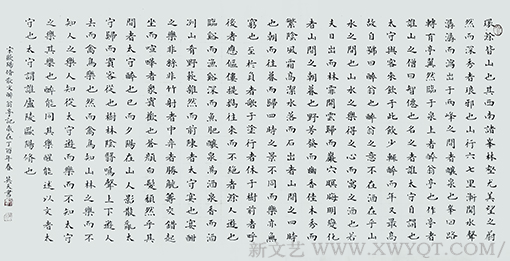 環滁皆山也其西南諸峯林壑尤美望之蔚
然而深秀者琅邪也山行六七里漸聞水聲
潺潺而瀉出于兩峰之間者釀泉也峯回路
轉有亭翼然臨于泉上者醉翁亭也作亭者
誰山之僧曰智僊也名之者誰太守自謂也
太守與客來飲于此飲少輒醉而年又最高
故自號曰醉翁也醉翁之意不在酒在乎山
水之間也山水之樂得之心而寓之酒也若
夫日出而林霏開雲歸而巖穴暝晦明變化
者山間之朝暮也野芳發而幽香佳木秀而
繁陰風霜高潔水落而石出者山間之四時
也朝而往暮而歸四時之景不同而樂亦無
窮也至於負者歌于塗行者休于樹前者呼
後者應傴僂提攜往來而不絕者滁人遊也
臨谿而漁谿深而魚肥釀泉爲酒泉香而酒
洌山肴野蔌雜然而前陳者太守宴也宴酣
之樂非絲非竹射者中弈者勝觥籌交錯起
坐而諠譁者衆賓懽也蒼顏白髮頹然乎其
間者太守醉也已而夕陽在山人影散亂太
守歸而賓客從也樹林陰翳鳴聲上下遊人
去而禽鳥樂也然而禽鳥知山林之樂而不
知人之樂人知從太守遊而樂而不知太守
之樂其樂也醉能同其樂醒能述以文者太
守也太守謂誰廬陵歐陽修也
宋歐陽修散文醉翁亭記歲在丁酉年春
新文艺 www.XWYQT.COM